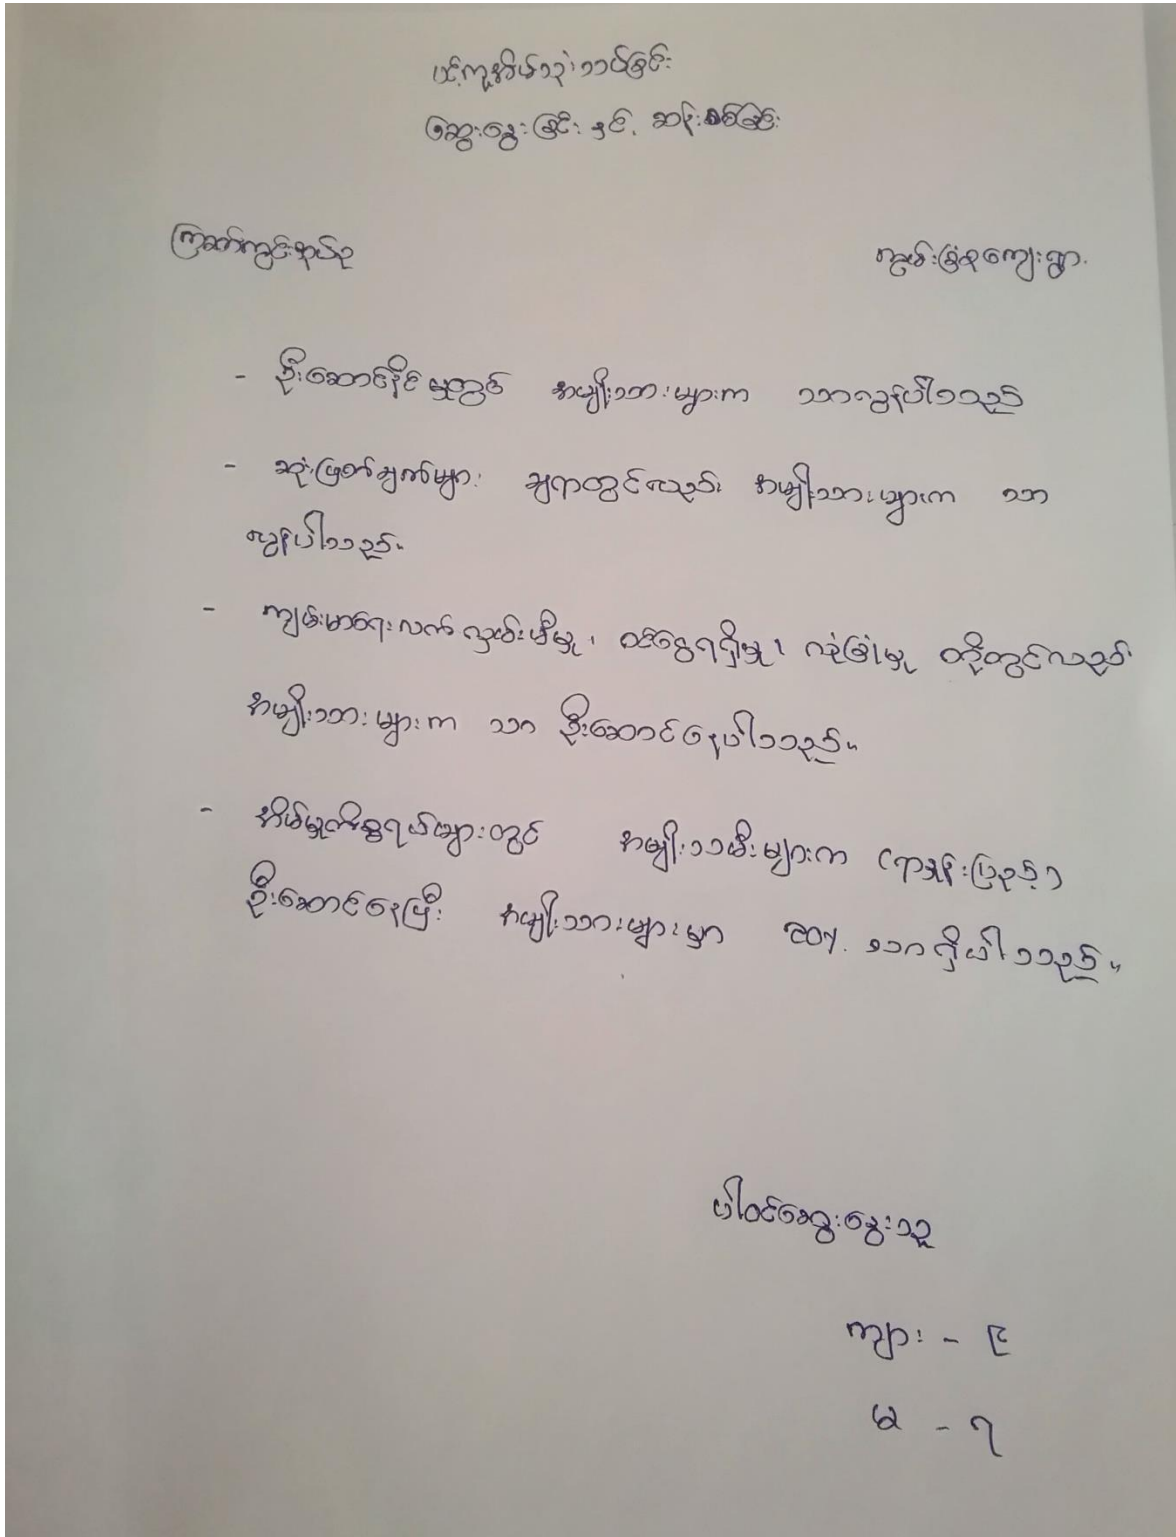 ပင့်ကူအိမ်သုံးသပ်ခြင်း
ဆွေးနွေးခြင်း နှင့် ဆန်းစစ်ခြင်း
ကြဆတ်ကွင်းအုပ်စု ကျေးရွာ
- ဦးဆောင်နိုင်မှုတွင် အမျိုးသားများက သာလွန်ပါသည်
- ဆုံးဖြတ်ချက်များ ချရာတွင်လည်း အမျိုးသားများက သာ
လွန်ပါသည်။
- ကျမ်းမာရေးလက်လှမ်းမီမှု၊ ဝင်ငွေရရှိမှု၊ လုံခြုံမှု တို့တွင်လည်း
အမျိုးသားများက သာ ဦးဆောင်နေပါသည်။
- အိမ်မှုကိစ္စရပ်များတွင် အမျိုးသမီးများက ရာနှုန်းပြည့်
ဦးဆောင်နေပြီး အမျိုးသားများမှာ ၅၀% သာရှိပါသည်။
ပါဝင်ဆွေးနွေးသူ
ကျား - ၉
မ - ၇